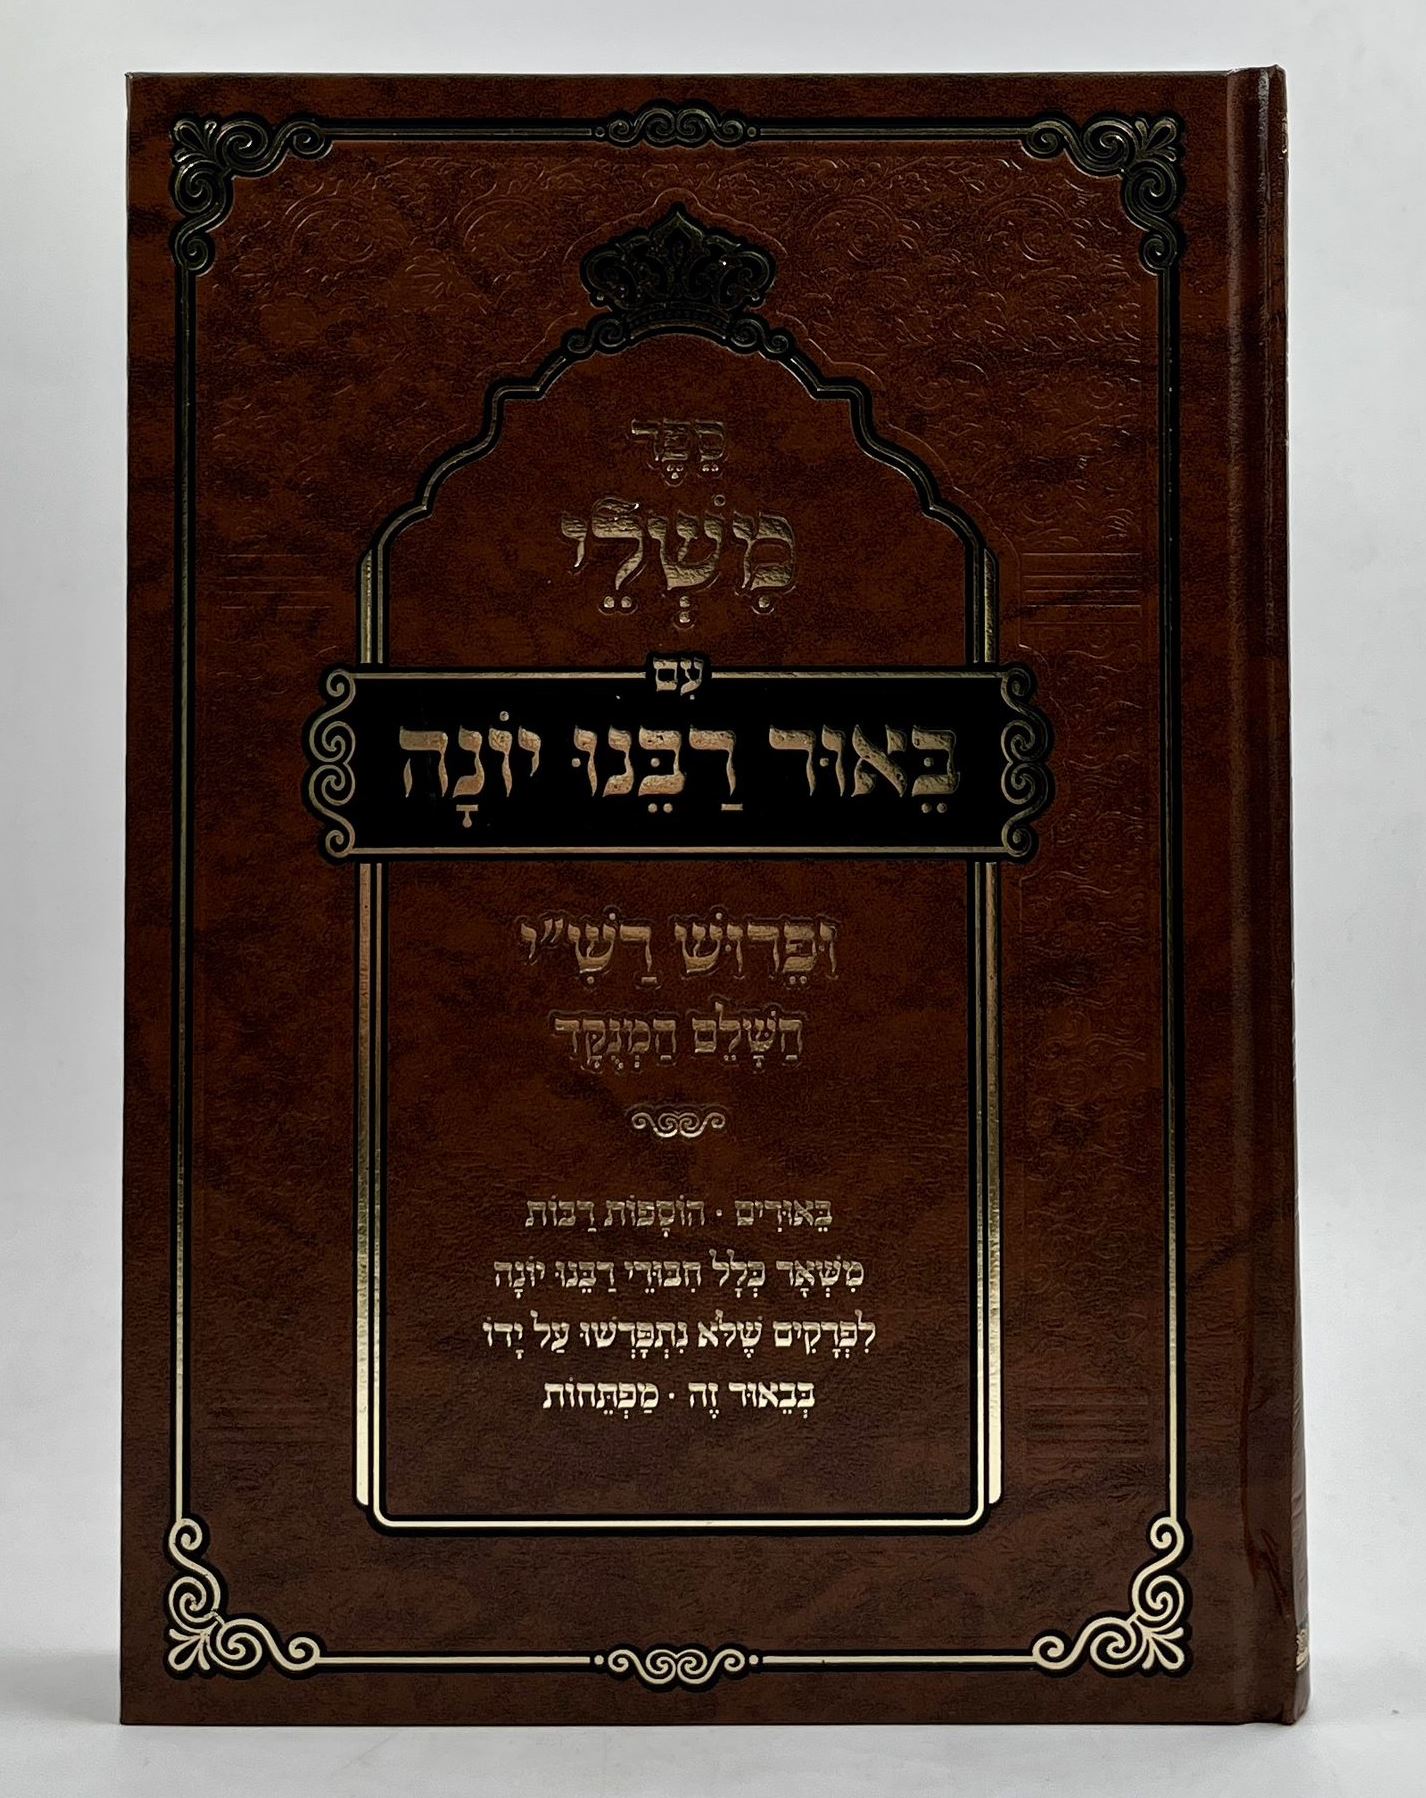 סֵפֶר
מִשְׁלֵי
עִם
בֵּאוּר רַבֵּנוּ יוֹנָה
וּפֵרוּשׁ רַשִׁ"י
הַשָּׁלֵם הַמְנֻקָּד
בֵּאוּרִים · הוֹסָפוֹת רַבּוֹת
מִשְּׁאָר כְּלָל חִבּוּרֵי רַבֵּנוּ יוֹנָה
לִפְרָקִים שֶׁלֹּא נִתְפָּרְשׁוּ עַל יָדוֹ
בְּבֵאוּר זֶה · מַפְתֵּחוֹת